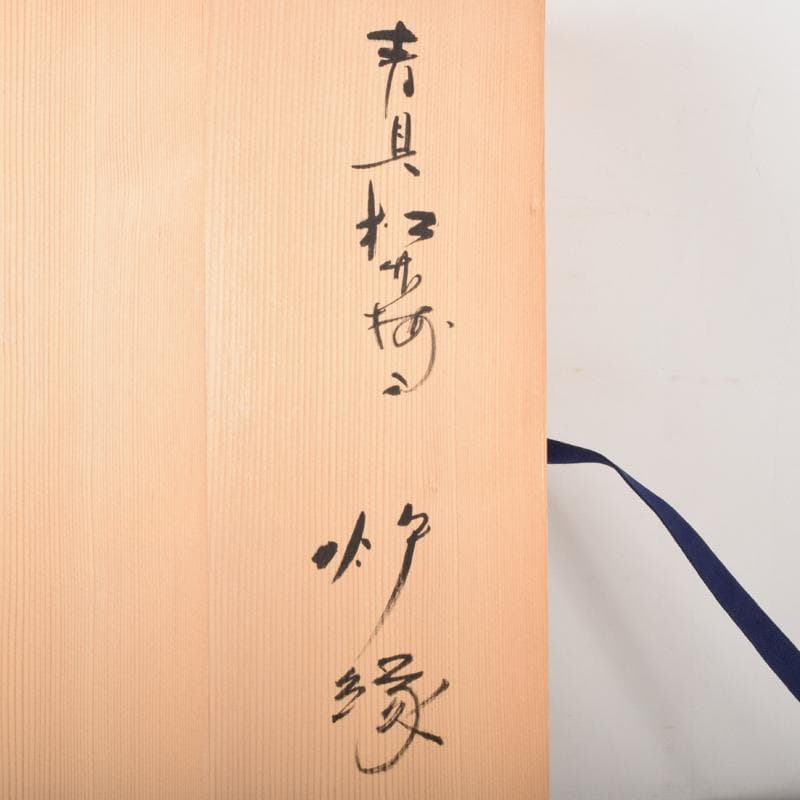 青貝松竹梅
炉縁